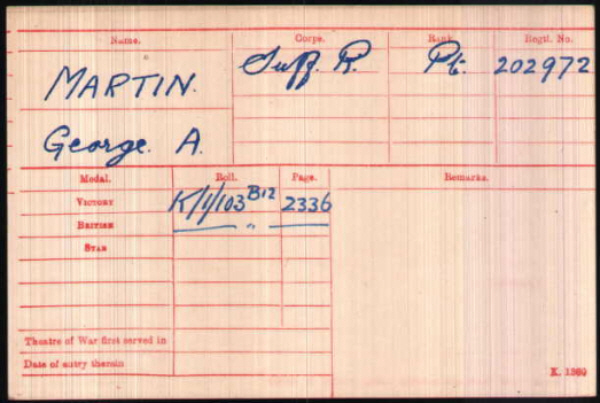 Name. Corps. Rank. Regtl. No.
MARTIN. Suff. R. Pt. 202972
George. A.
Medal. Roll. Page. Remarks.
VICTORY K/1/103 B12 2336
BRITISH "
STAR
Theatre of War first served in
Date of entry therein
K. 1380